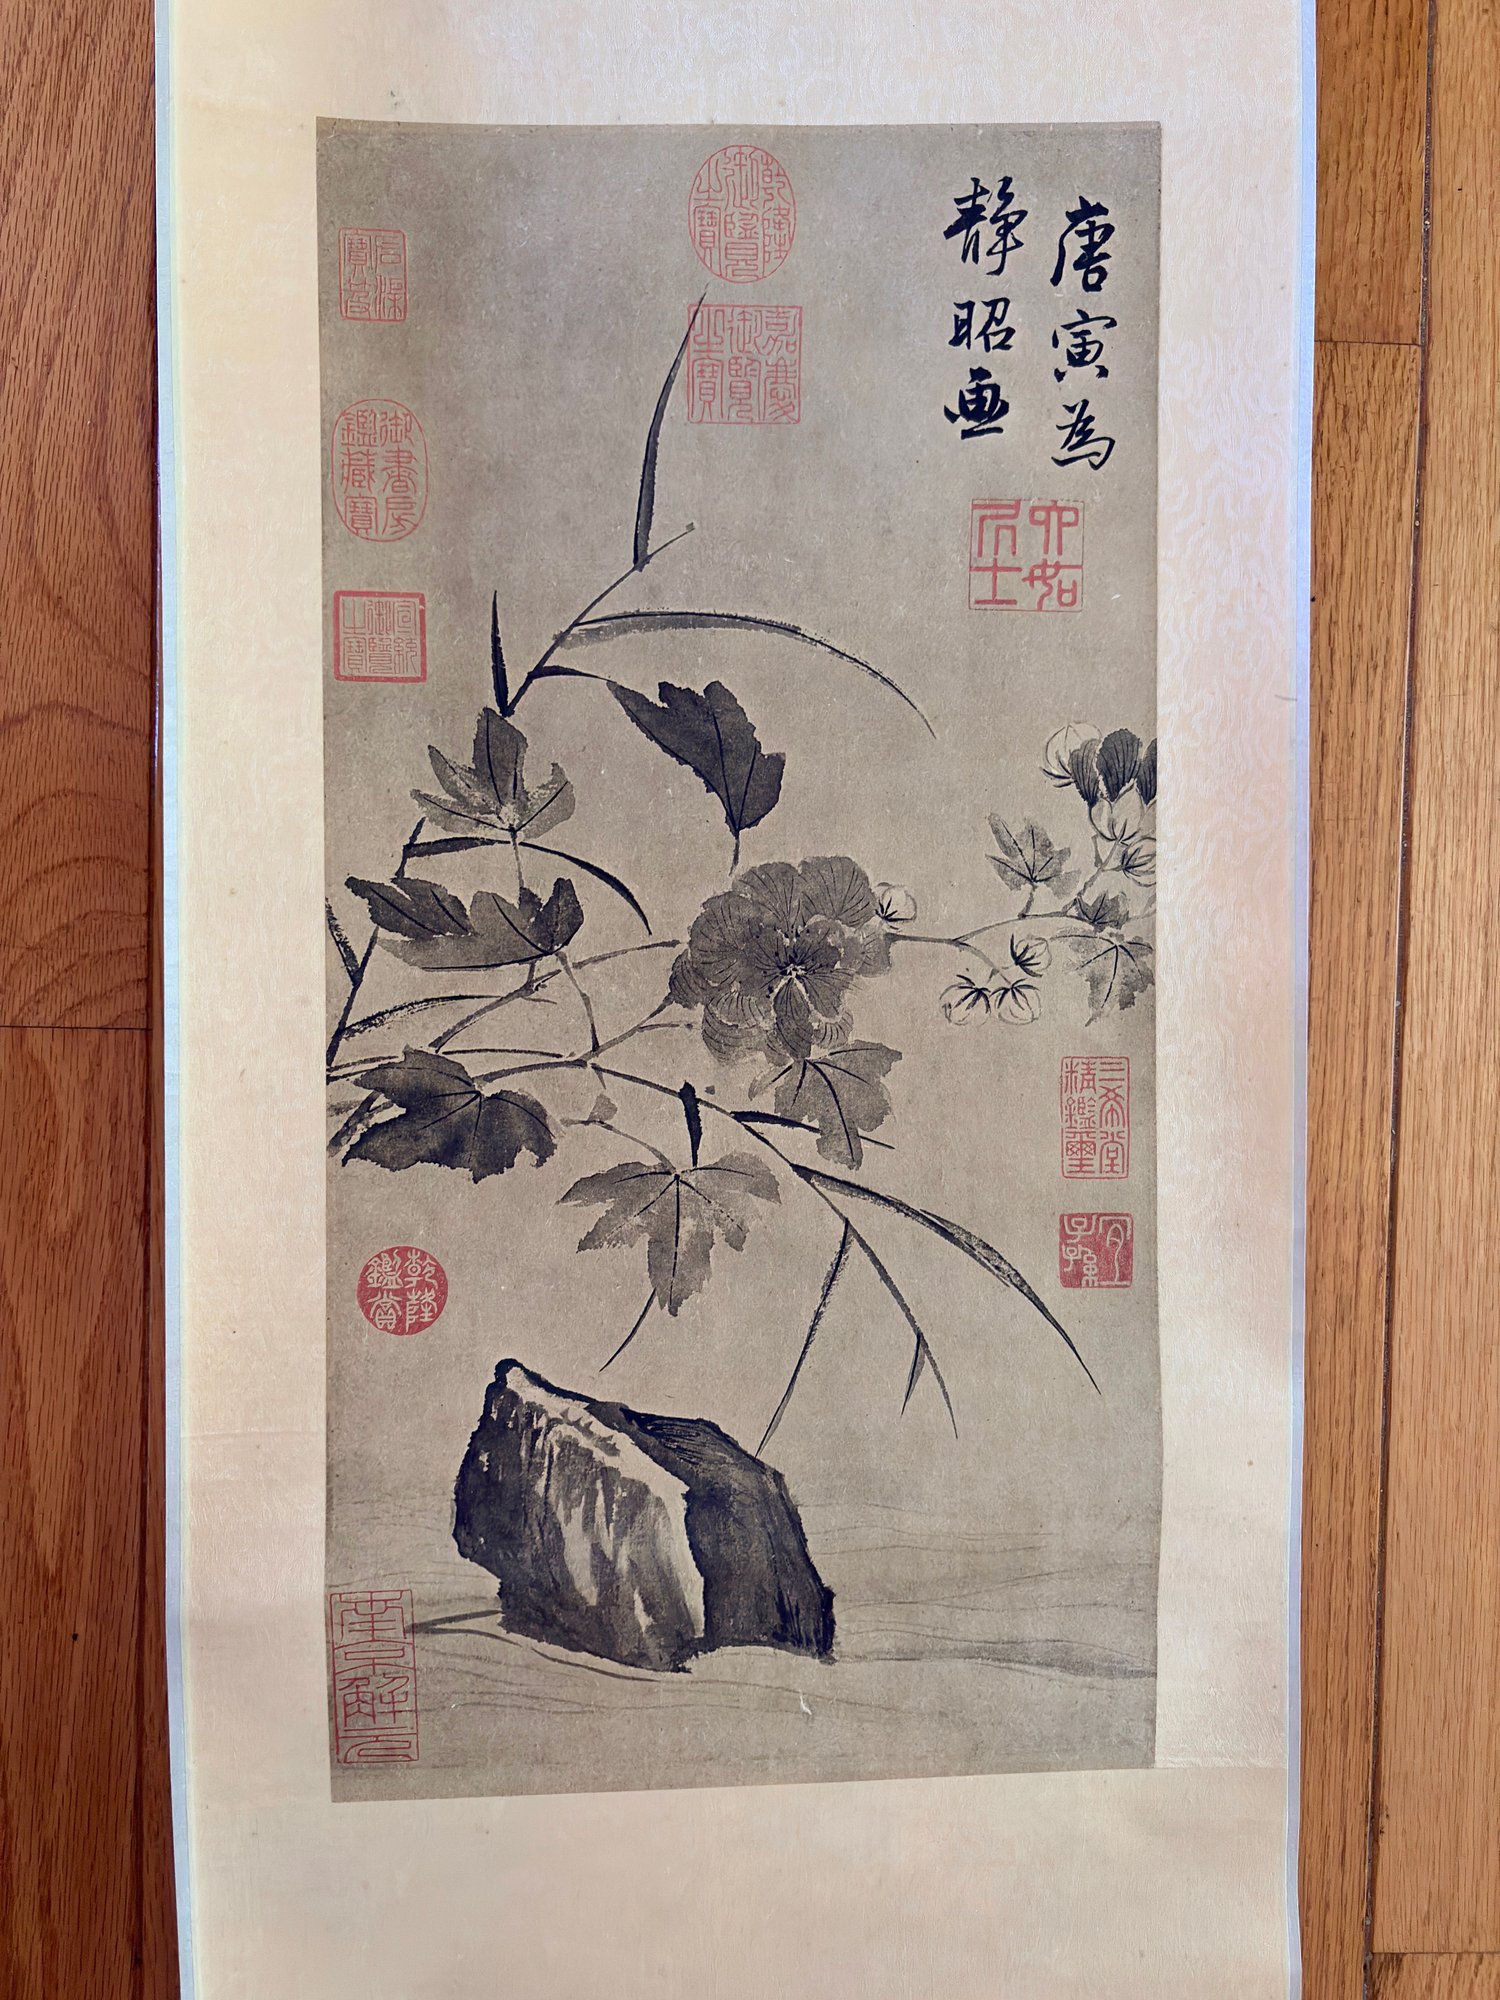 唐寅為
靜昭畫
六如居士
乾隆御覽之寶
嘉慶御覽之寶
石渠寶笈
御書房鑑藏寶
宣統御覽之寶
三希堂精鑑璽
宜子孫
乾隆鑑賞
南京解元